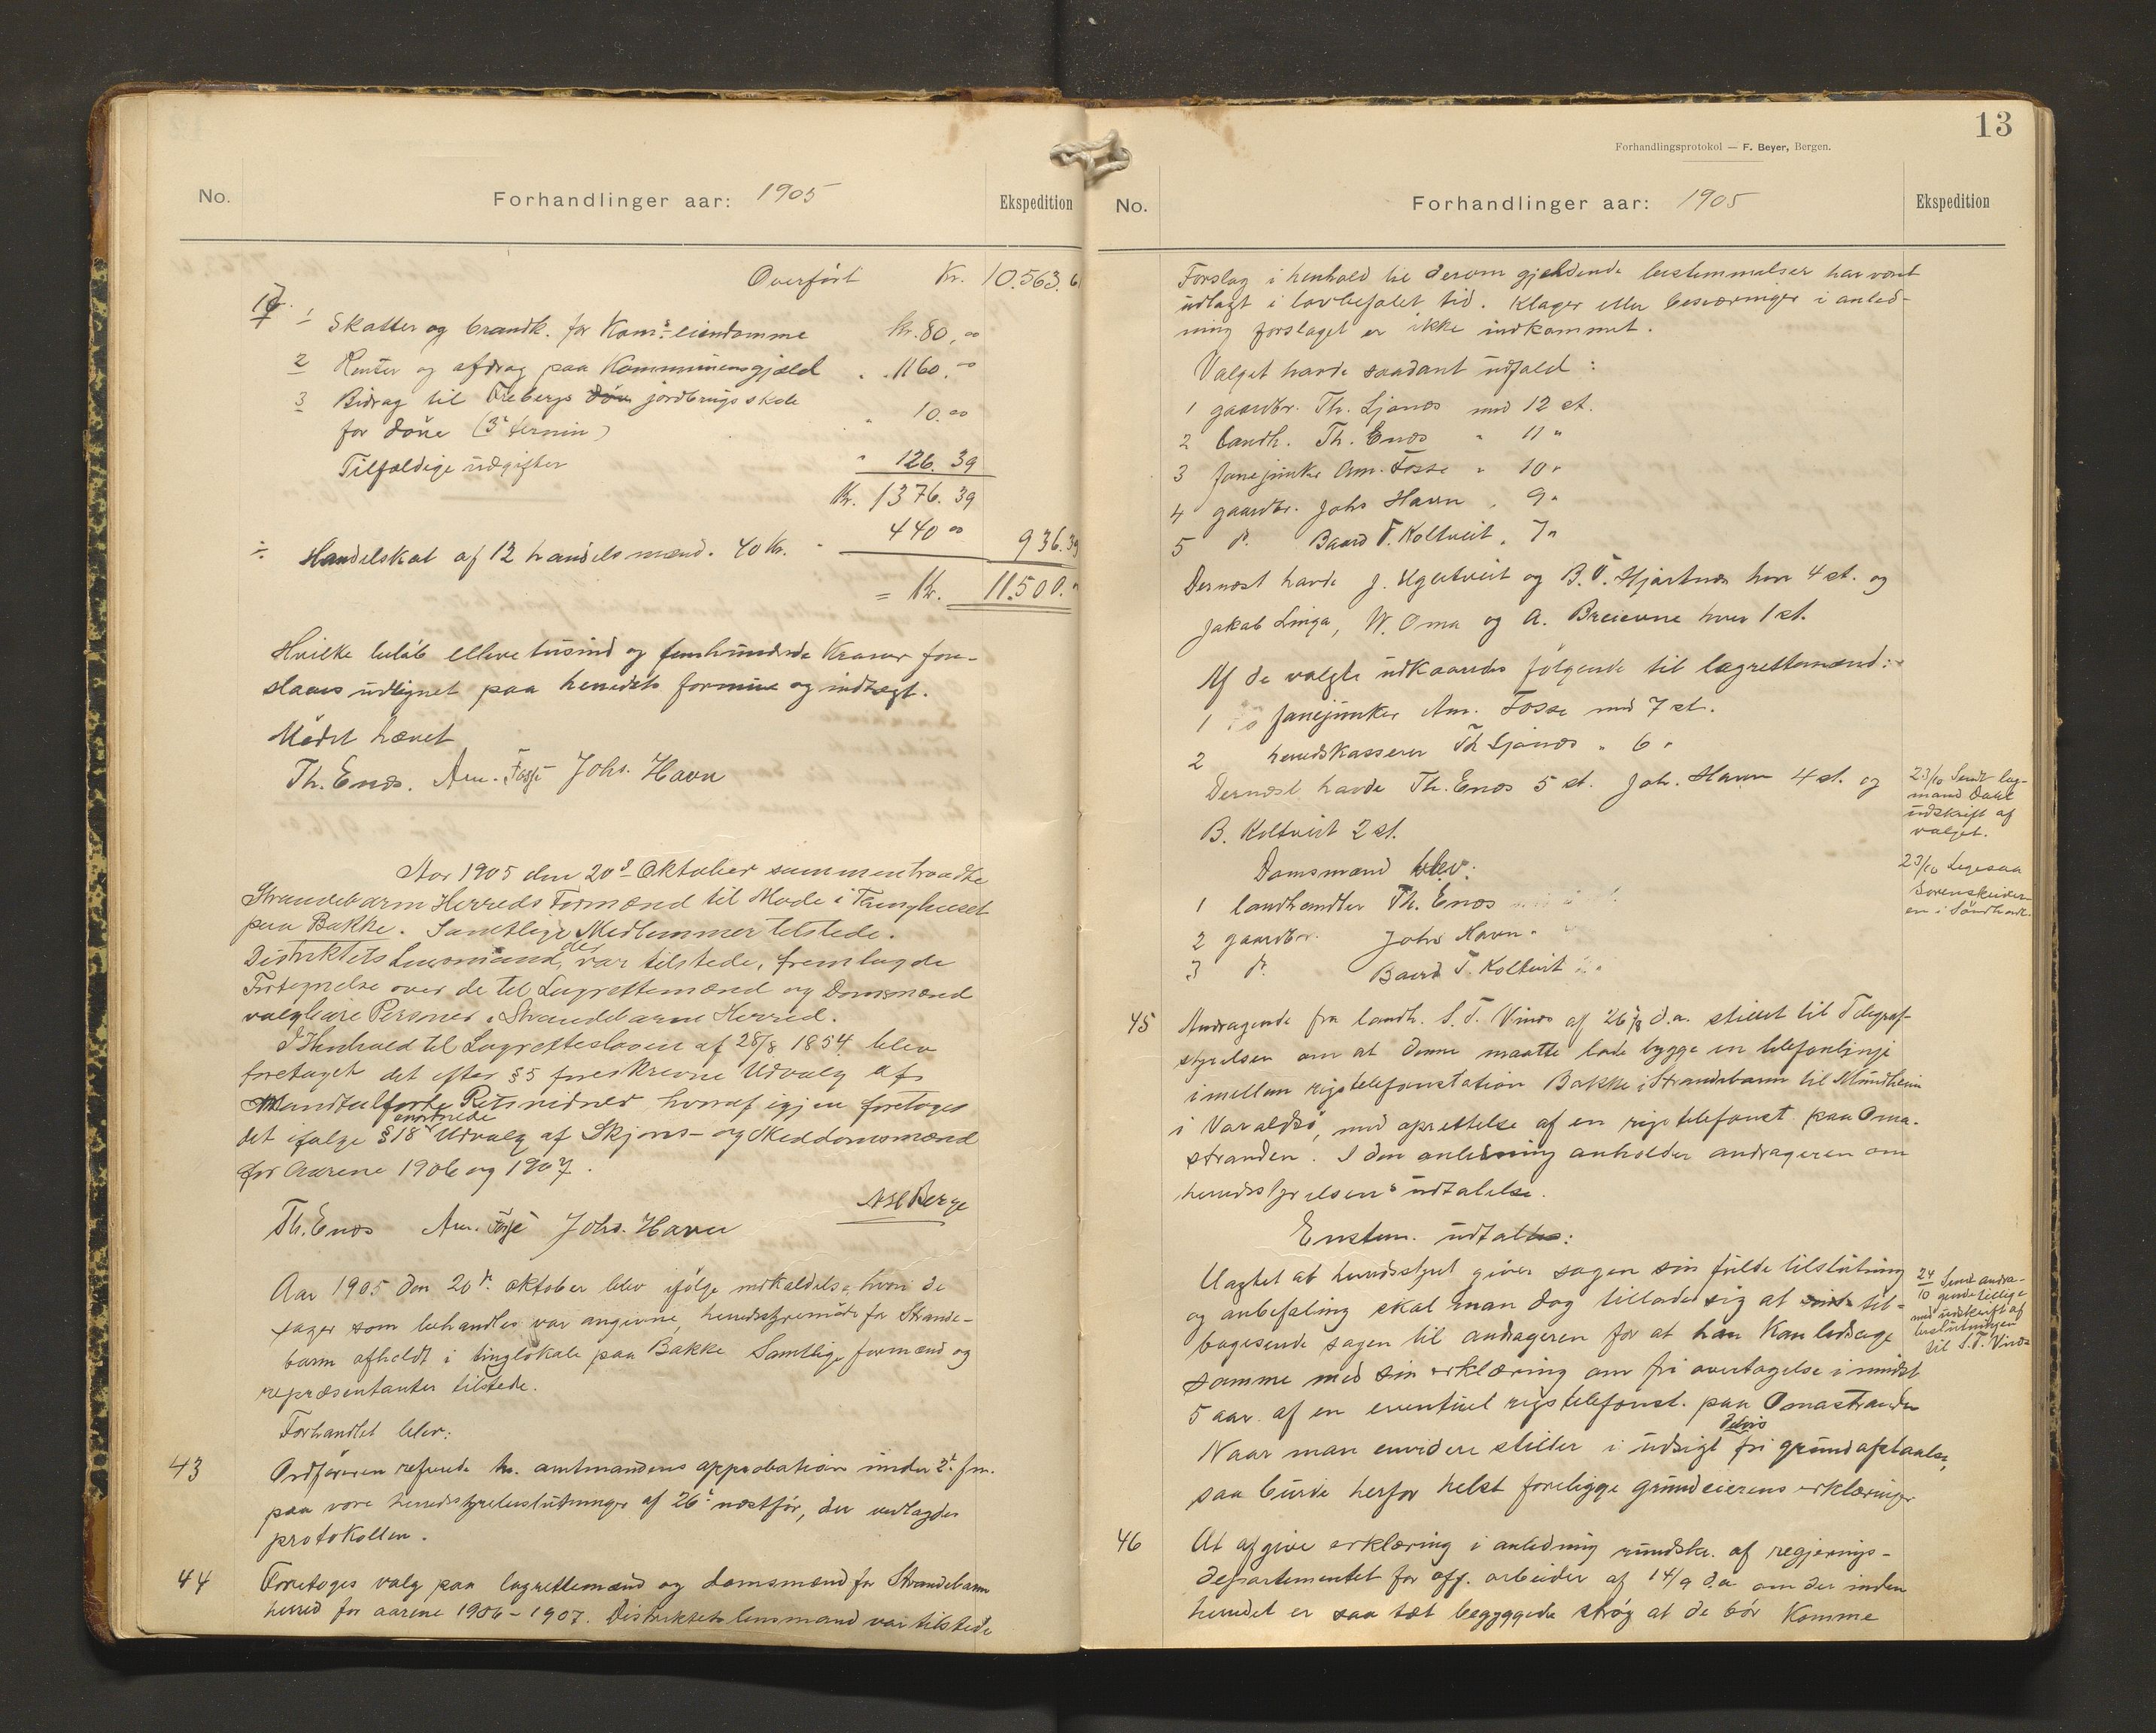 No.
Forhandlinger aar: 1905
Ekspedition
Overført Kr. 10.563.61
1 Skatter og brandk. for Koms eiendomme Kr. 80,00
2 Renter og afdrag paa Kommunens gjæld " 1160.00
3 Bidrag til Trebergs døv jordbrugsskole
for døve (3' termin) " 10.00
Tilfældige udgifter " 126.39
Kr. 1376.39
÷ Handelskat af 12 handelsmænd. 40 Kr. - 440 00 936.39
= Kr. 11.500.
Hvilke beløb elleve tusind og femhundrede Kroner fore-
slaaes udlignet paa herredets formue og indtægt.
Mødet hævet
Th. Enæs. Am. Fosse Johs. Havn
Aar 1905 den 20de Oktober sammentraadte
Strandebarm Herreds Formænd til Møde i Tinghuset
paa Bakke. Samtlige Medlemmer tilstede.
Distriktets Lensmand, der var tilstede, fremlagde
Fortegnelse over de til Lagrettemænd og Domsmænd
valgbare Personer i Strandebarm Herred.
I Henhold til Lagretteloven af 28/8 1854 blev
foretaget det efter §5 foreskrevne Udvalg af
Mandtalførte Retsvidner, hvoraf igjen foretoges
det ifølge §18 anordnede Udvalg af Skjøns- og Meddomsmænd
for Aarene 1906 og 1907.
Berge
Th. Enæs Am. Fosse Johs. Havn
Aar 1905 den 20de oktober blev ifølge indkaldelse, hvori de
sager som behandles var angivne, herredsstyremøde for Strande-
barm afholdt i tinglokale paa Bakke Samtlige formænd og
repræsentanter tilstede.
Forhandlet blev:
43 Ordføreren refererede hr. amtmandens approbation under 2. fm.
paa vore herredsstyrebeslutninger af 26de næstfør, der vedlagdes
protokollen.
44 Foretoges valg paa lagrettemænd og domsmænd for Strandebarm
herred for aarene 1906-1907. Distriktets lensmand var tilstede
13
Forhandlingsprotokol — F. Beyer, Bergen.
No.
Forhandlinger aar: 1905
Ekspedition
Forslag i henhold til derom gjældende bestemmelser har været
udlagt i lovbefalet tid. Klager eller besværinger i anled-
ning forslaget er ikke indkommet.
Valget havde saadant udfald:
1 gaardbr. Th. Ljones med 12 st.
2 landh. Th. Enæs " 11 "
3 fanejunker Am. Fosse " 10 "
4 gaardbr. Johs Havn " 9 "
5 do. Baard T. Koltveit " 7 "
Dernæst havde J. Ugletveit og B. T. Hjartnes hver 4 st. og
Jakob Linga, W. Oma og A. Breievne hver 1 st.
Af de valgte udkaaredes følgende til lagrettemænd:
1 fanejunker Am. Fosse med 7 st.
2 herredskasserer Th Ljones " 6 "
Dernæst havde Th. Enæs 5 st. Joh. Havn 4 st. og
B. Koltveit 2 st.
23/10 Sendt lag-
mand Dahl
udskrift af
valget.
Domsmænd blev:
1 landhandler Th. Enæs
2 gaardbr. Johs Havn
3 do. Baard T. Koltveit
23/10 Ligesaa
Sorenskriver-
en i Søndhordl.
45 Andragende fra landh. S. T. Vinæs af 26/8 d.a. stilet til Telegraf-
styrelsen om at denne maatte lade bygge en telefonlinje
imellem rigstelefonstation Bakke i Strandebarm til Mundheim
i Varaldsø, med oprettelse af en rigstelefonst. paa Oma-
stranden. I den anledning anholder andrageren om
herredsstyrelsens udtalelse.
Enstem. udtaltes:
Uagtet at herredsstyret giver sagen sin fulde tilslutning
og anbefaling skal man dog tillade sig at til-
bagesende sagen til andrageren for at han kan ledsage
samme med sin erklæring om fri overtagelse i mindst
5 aar af en eventuel rigstelefonst. paa Omastranden
Naar man envidere stiller i udsigt delvis fri grundafstaaelse,
saa burde herfor helst foreligge grundeierens erklæringer
24/10 Sendt andra-
gende tillige
med udskrift af
beslutningen
til S. T. Vinæs
46 At afgive erklæring i anledning rundskr. af regjerings-
departementet for off. arbeider af 14/9 d.a om der inden
herredet er saa tæt bebyggede strøg at de bør komme